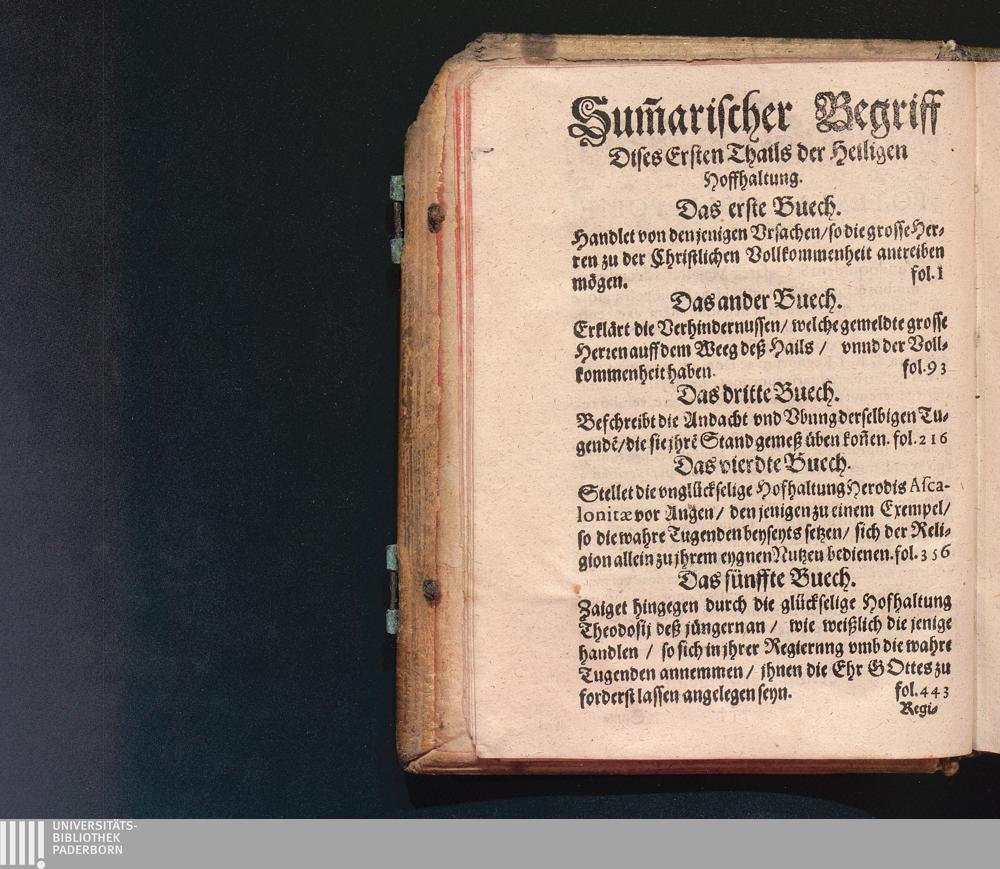 Sum̃arischer Begriff
Dises Ersten Thails der Heiligen
Hoffhaltung.
Das erste Buech.
Handlet von den jenigen Vrsachen/ so die grosse Her⸗
ren zu der Christlichen Vollkommenheit antreiben
mögen. fol.1
Das ander Buech.
Erklärt die Verhindernussen/ welche gemeldte grosse
Herren auff dem Weeg deß Hails / vnnd der Voll⸗
kommenheit haben. fol.93
Das dritte Buech.
Beschreibt die Andacht vnd Vbung derselbigen Tu⸗
gendẽ/ die sie jhrẽ Stand gemeß üben koñen. fol.216
Das vierdte Buech.
Stellet die vnglückselige Hofhaltung Herodis Asca-
lonitæ vor Augen/ den jenigen zu einem Exempel/
so die wahre Tugenden beyseyts setzen/ sich der Reli⸗
gion allein zu jhrem eygnen Nutzeu bedienen. fol.356
Das fünffte Buech.
Zaiget hingegen durch die glückselige Hofhaltung
Theodosij deß jüngern an / wie weißlich die jenige
handlen / so sich in jhrer Regiernng vmb die wahre
Tugenden annemmen/ jhnen die Ehr GOttes zu
forderst lassen angelegen seyn. fol.443
Regi⸗
UNIVERSITÄTS-
BIBLIOTHEK
PADERBORN